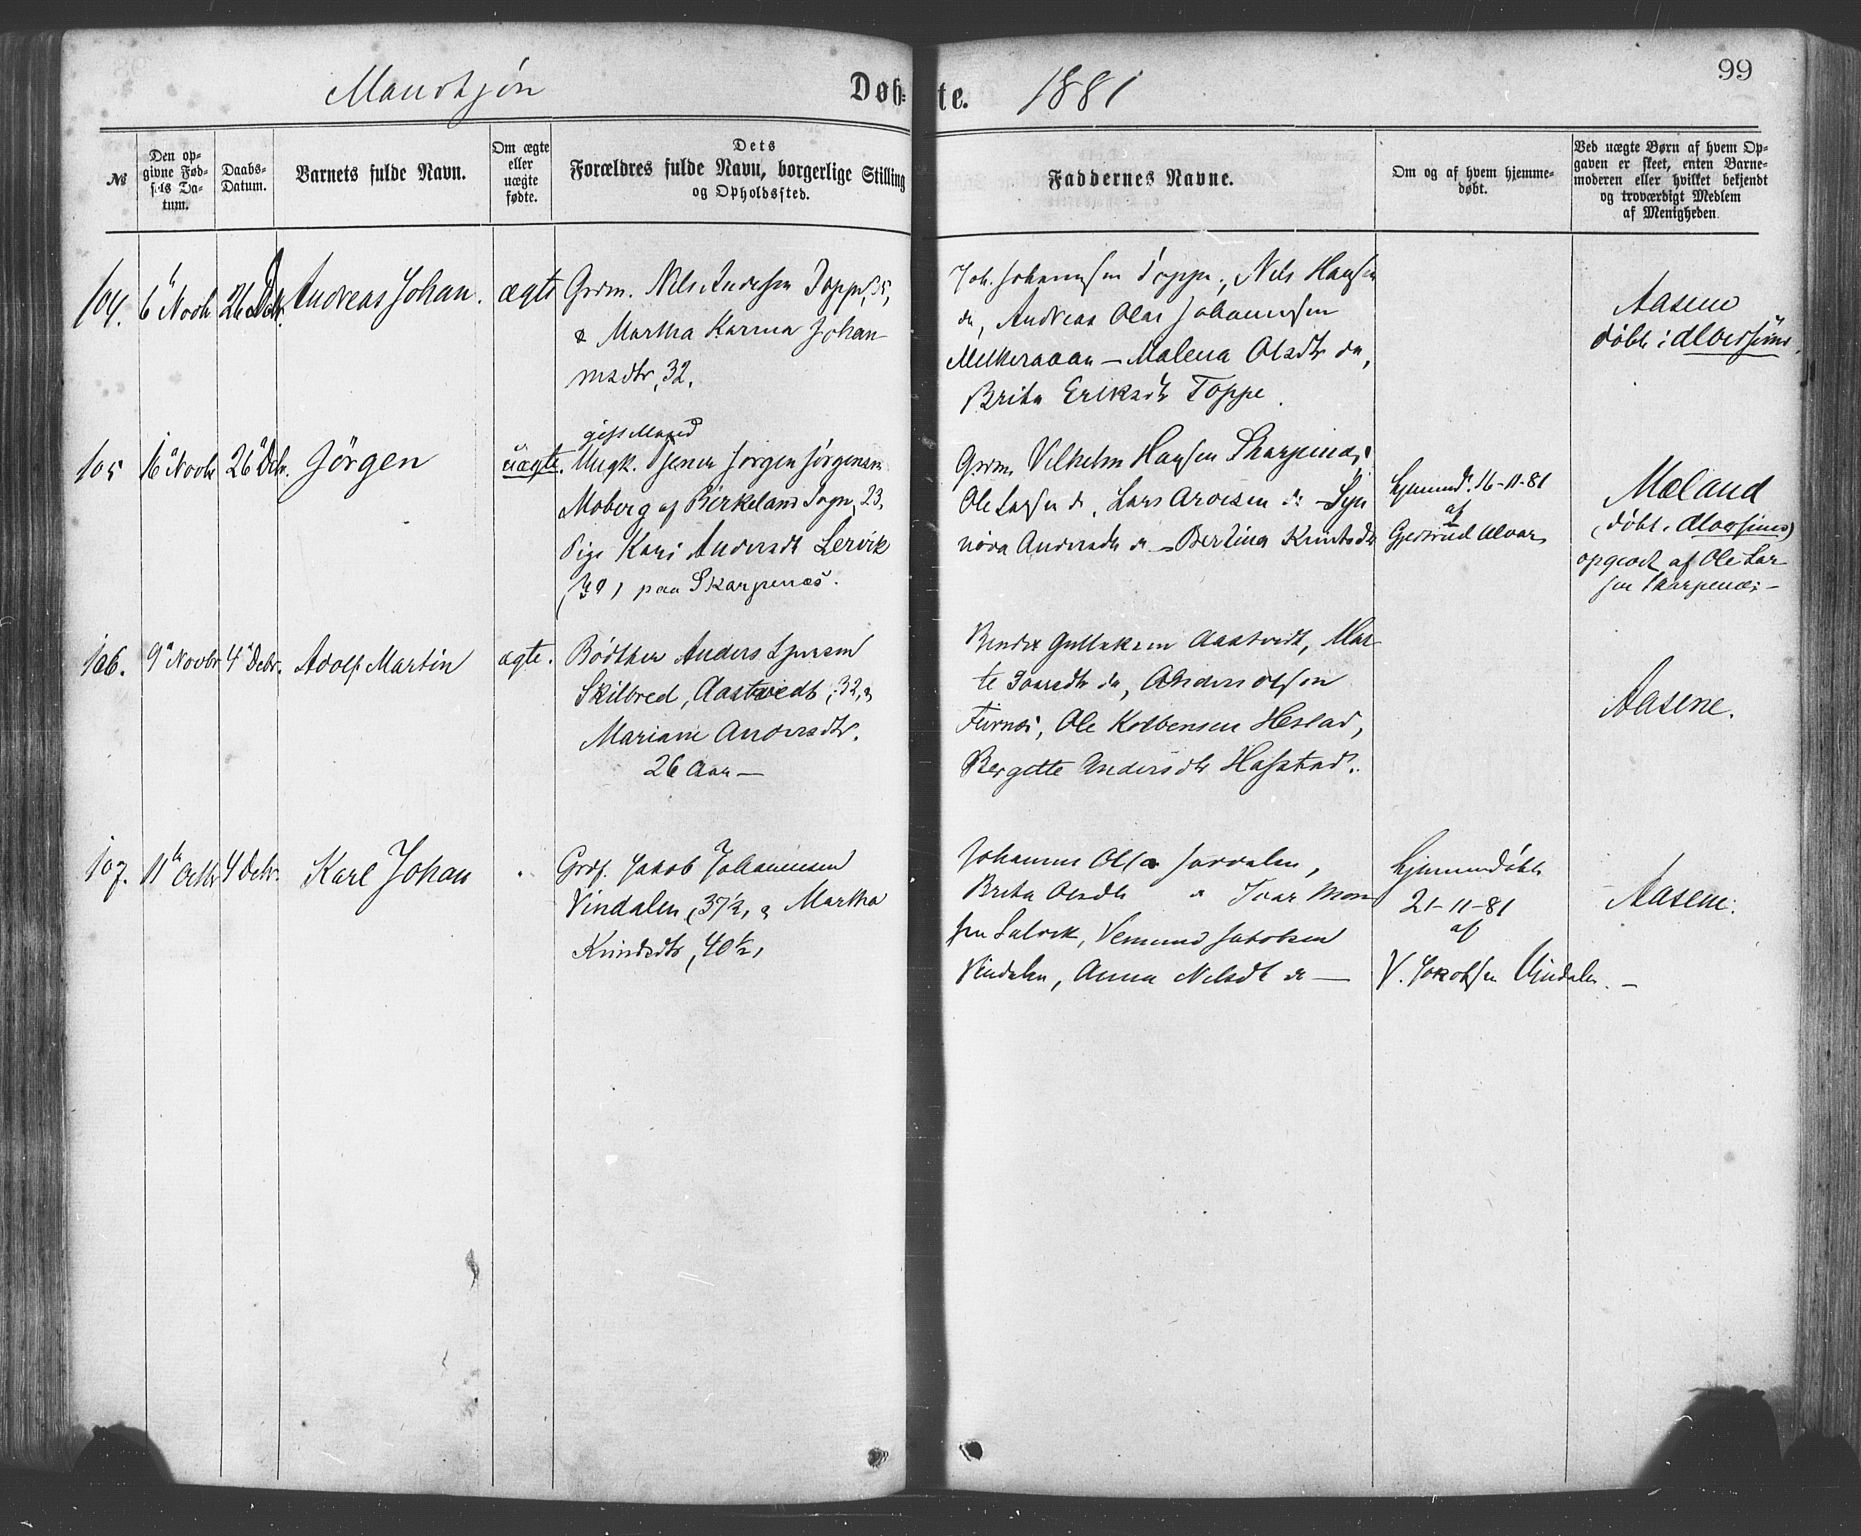 Mandkjøn Døb= te. 1881 99
№
Den op-
givne Fød-
sels Da-
tum.
Daabs-
Datum.
Barnets fulde Navn.
Om ægte
eller
uægte
fødte.
Dets
Forældres fulde Navn, borgerlige Stilling
og Opholdssted.
Faddernes Navne.
Om og af hvem hjemme-
døbt.
Ved uægte Børn af hvem Op-
gaven er skeet, enten Barne-
moderen eller hvilket bekjendt
og troværdigt Medlem
af Menigheden.
104. 6 Novbr 26 Decbr. Andreas Johan. ægte
Grdm. Nils Andersen Toppe, 35,
& Martha Karina Johan
nesdtr, 32.
Joh. Johannesen Toppe, Nils Hansen
do, Andreas Olai Johannesen
Melkeraaan — Malena Olsdtr do,
Brita Eriksdtr Toppe.
Aasene
døbt i Alversund.
105 16 Novbr 26 Decbr. Jörgen uægte.
gift Mand
Ungk. Tjener Jørgen Jørgensen
Moberg af Birkeland Sogn, 23,
Pige Kari Andersdt Lervik
(30) paa Skarpenæs.
Grdm. Vilhelm Hansen Skarpenæs
Ole Larsen do, Lars Arvesen do — Syn
növa Andersdtr do — Bertina Knutsdtr
hjemmed. 16-11-81
af
Gjertrud Alvær
Mæland
(døbt i Alversund)
opgivet af Ole Lar
sen Skarpenæs —
106. 9 Novbr. 4 Decbr. Adolf Martin ægte.
Bødtker Anders
Skilbred, Aastvedt, 32, &
Mariane Andersdtr.
26 Aar —
Aastvedt, Mar
te Ivarsdtr do, Anders Olsen
Furnes, Ole Kolbensen Heslad,
Bergitte Andersdtr Hafstad.
Aasene.
107. 11 Octbr 4 Decbr. Karl Johan "
Grdf. Jakob Johannesen
Vindalen, 37½, & Martha
Knudsdtr, 40½,
Johannes Olsen
Brita Olsdtr " Ivar Mon
sen Salvik, Vemund Jakobsen
Vindalen, Anna Nilsdt do —
hjemmedøbt
21-11-81
af
V. Jakobsen Vindalen. —
Aasene.